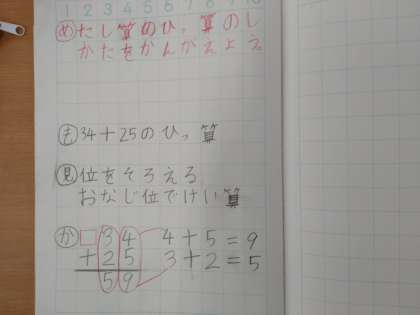 1 2 3 4 5 6 7 8 9 10
め たし算のひっ算のし
かたをかんがえよう
も 34+25のひっ算
見 位をそろえる
おなじ位でけい算
か □34 4+5=9
+25 3+2=5
59